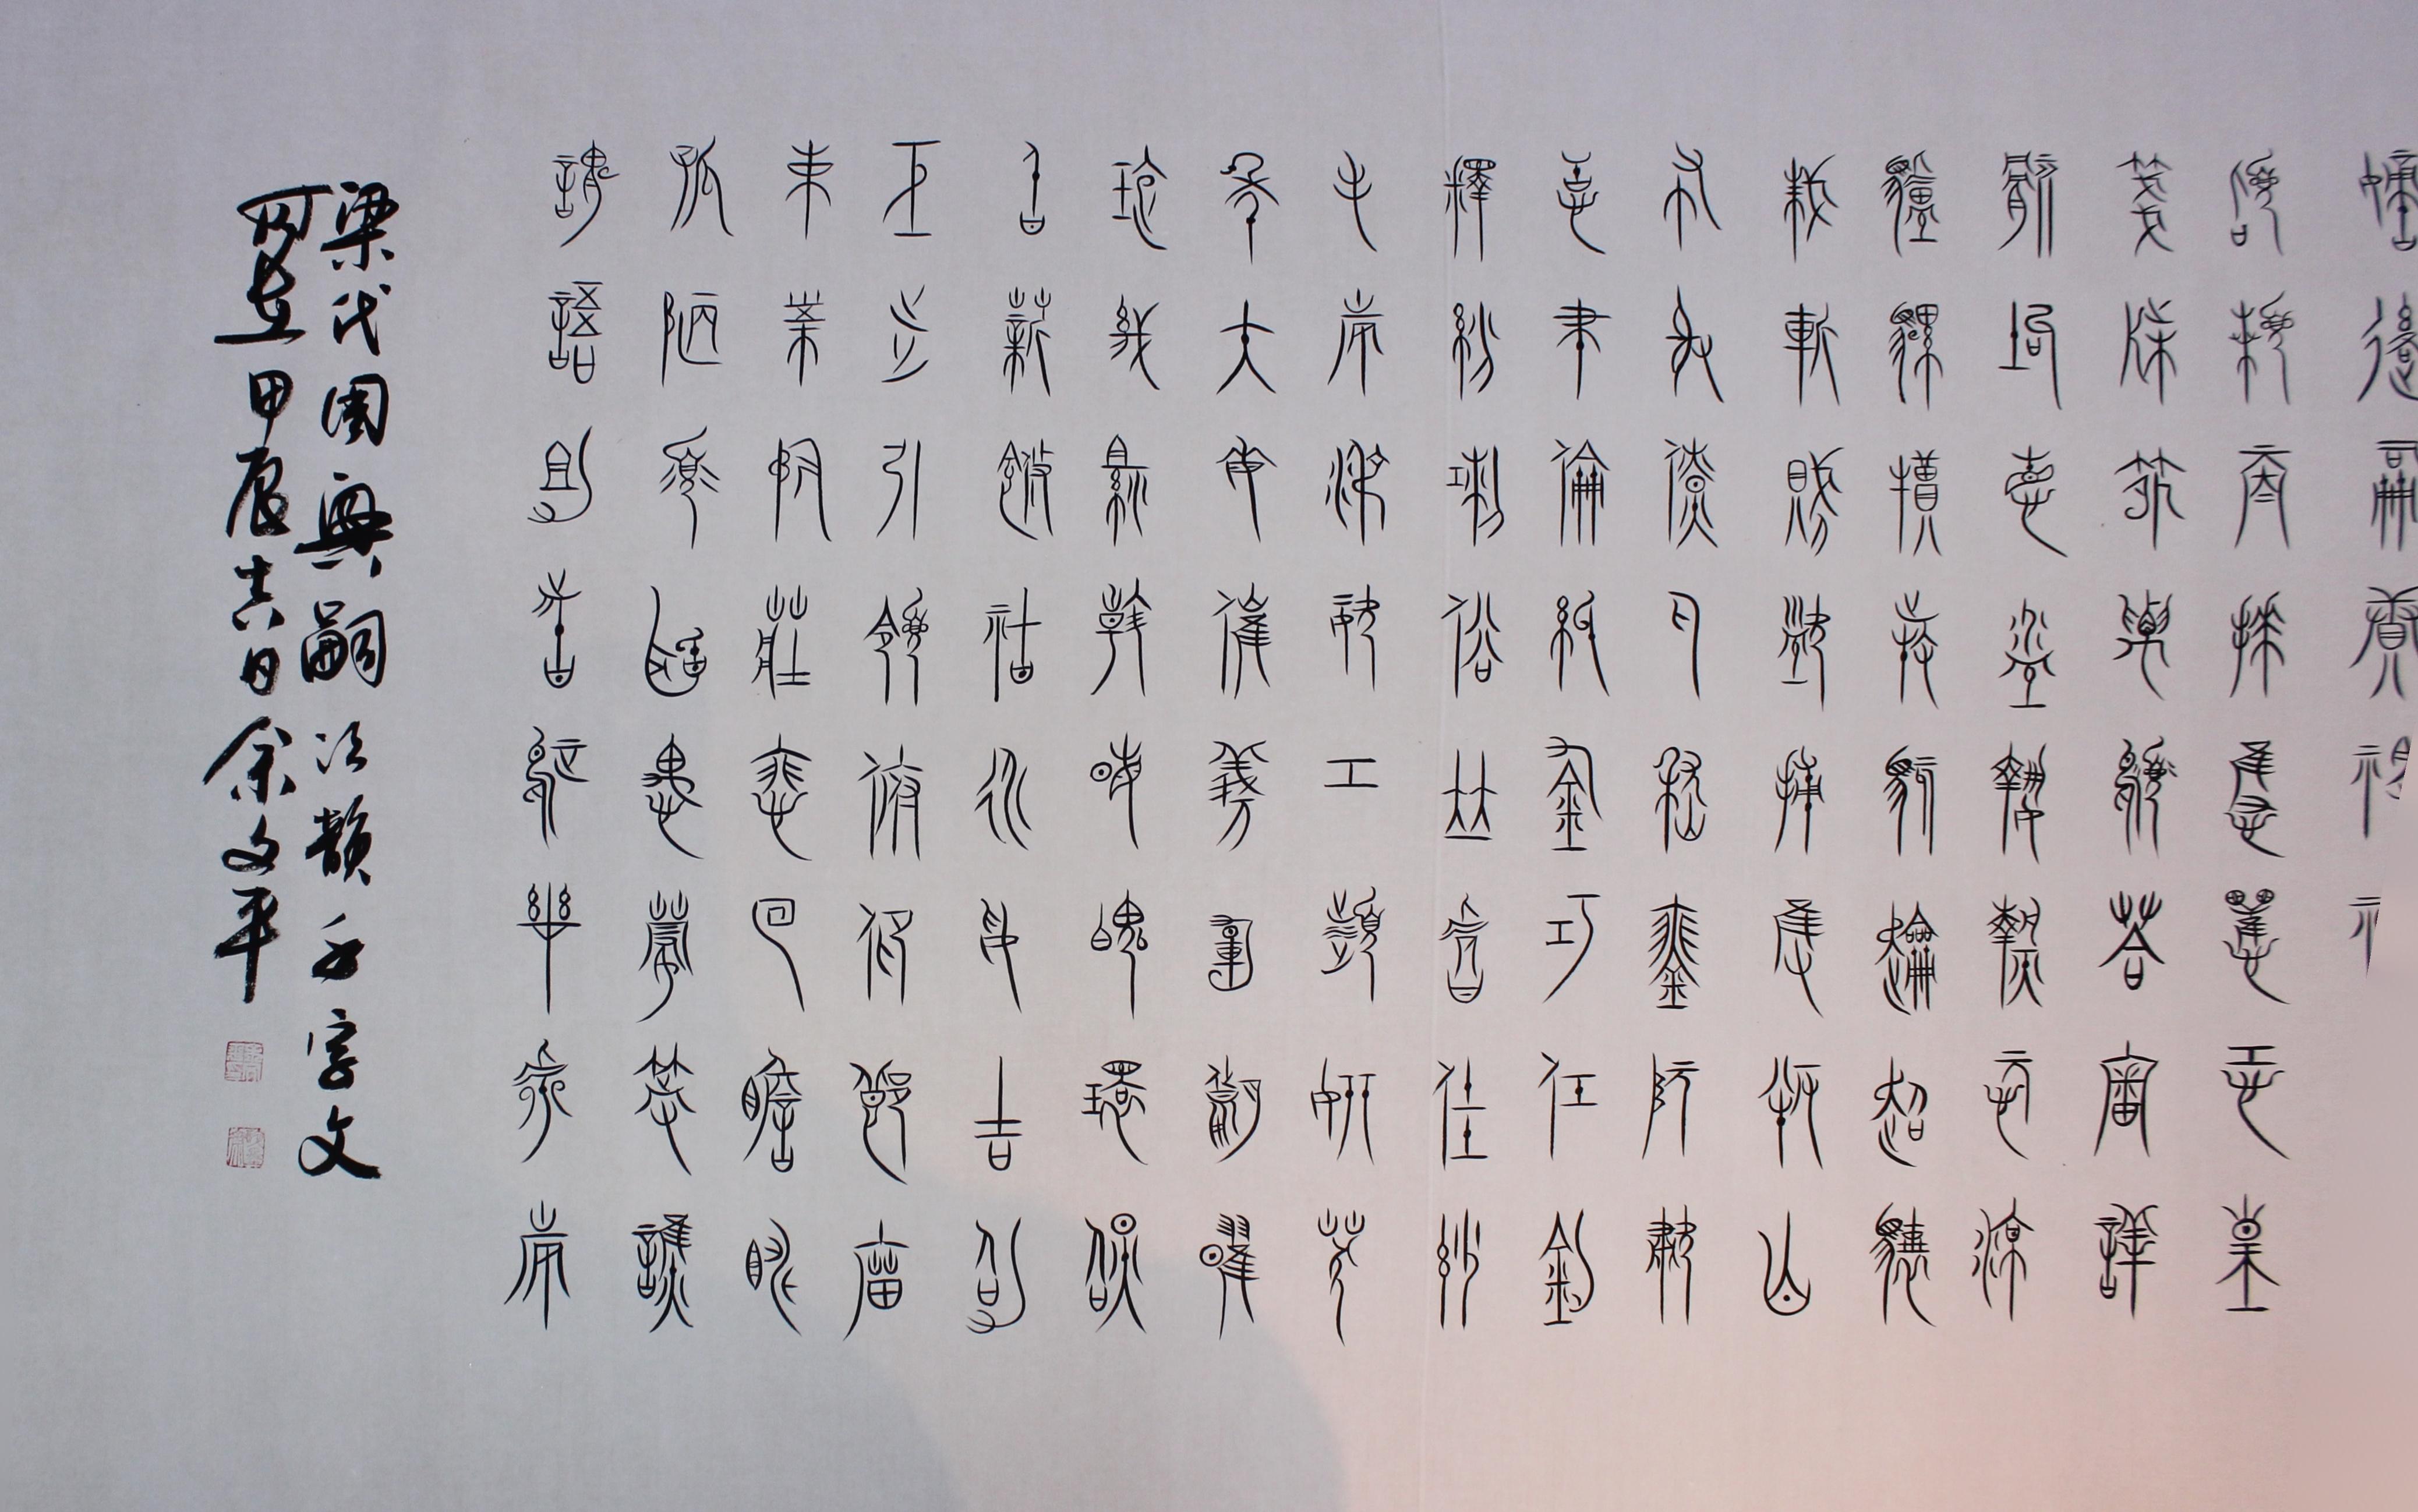 嫡後嗣續祭祀
稽顙再拜悚懼恐惶
箋牒簡要顧答審詳
骸垢想浴執熱願涼
驢騾犢特駭躍超驤
誅斬賊盜捕獲叛亡
布射僚丸嵇琴阮嘯
恬筆倫紙鈞巧任釣
釋紛利俗竝皆佳妙
毛施淑姿工顰妍笑
年矢每催曦暉朗曜
璇璣懸斡晦魄環照
指薪修祜永綏吉劭
矩步引領俯仰廊廟
束帶矜莊徘徊瞻眺
孤陋寡聞愚蒙等誚
謂語助者焉哉乎也
梁代周興嗣次韻千字文
甲辰吉日余文平